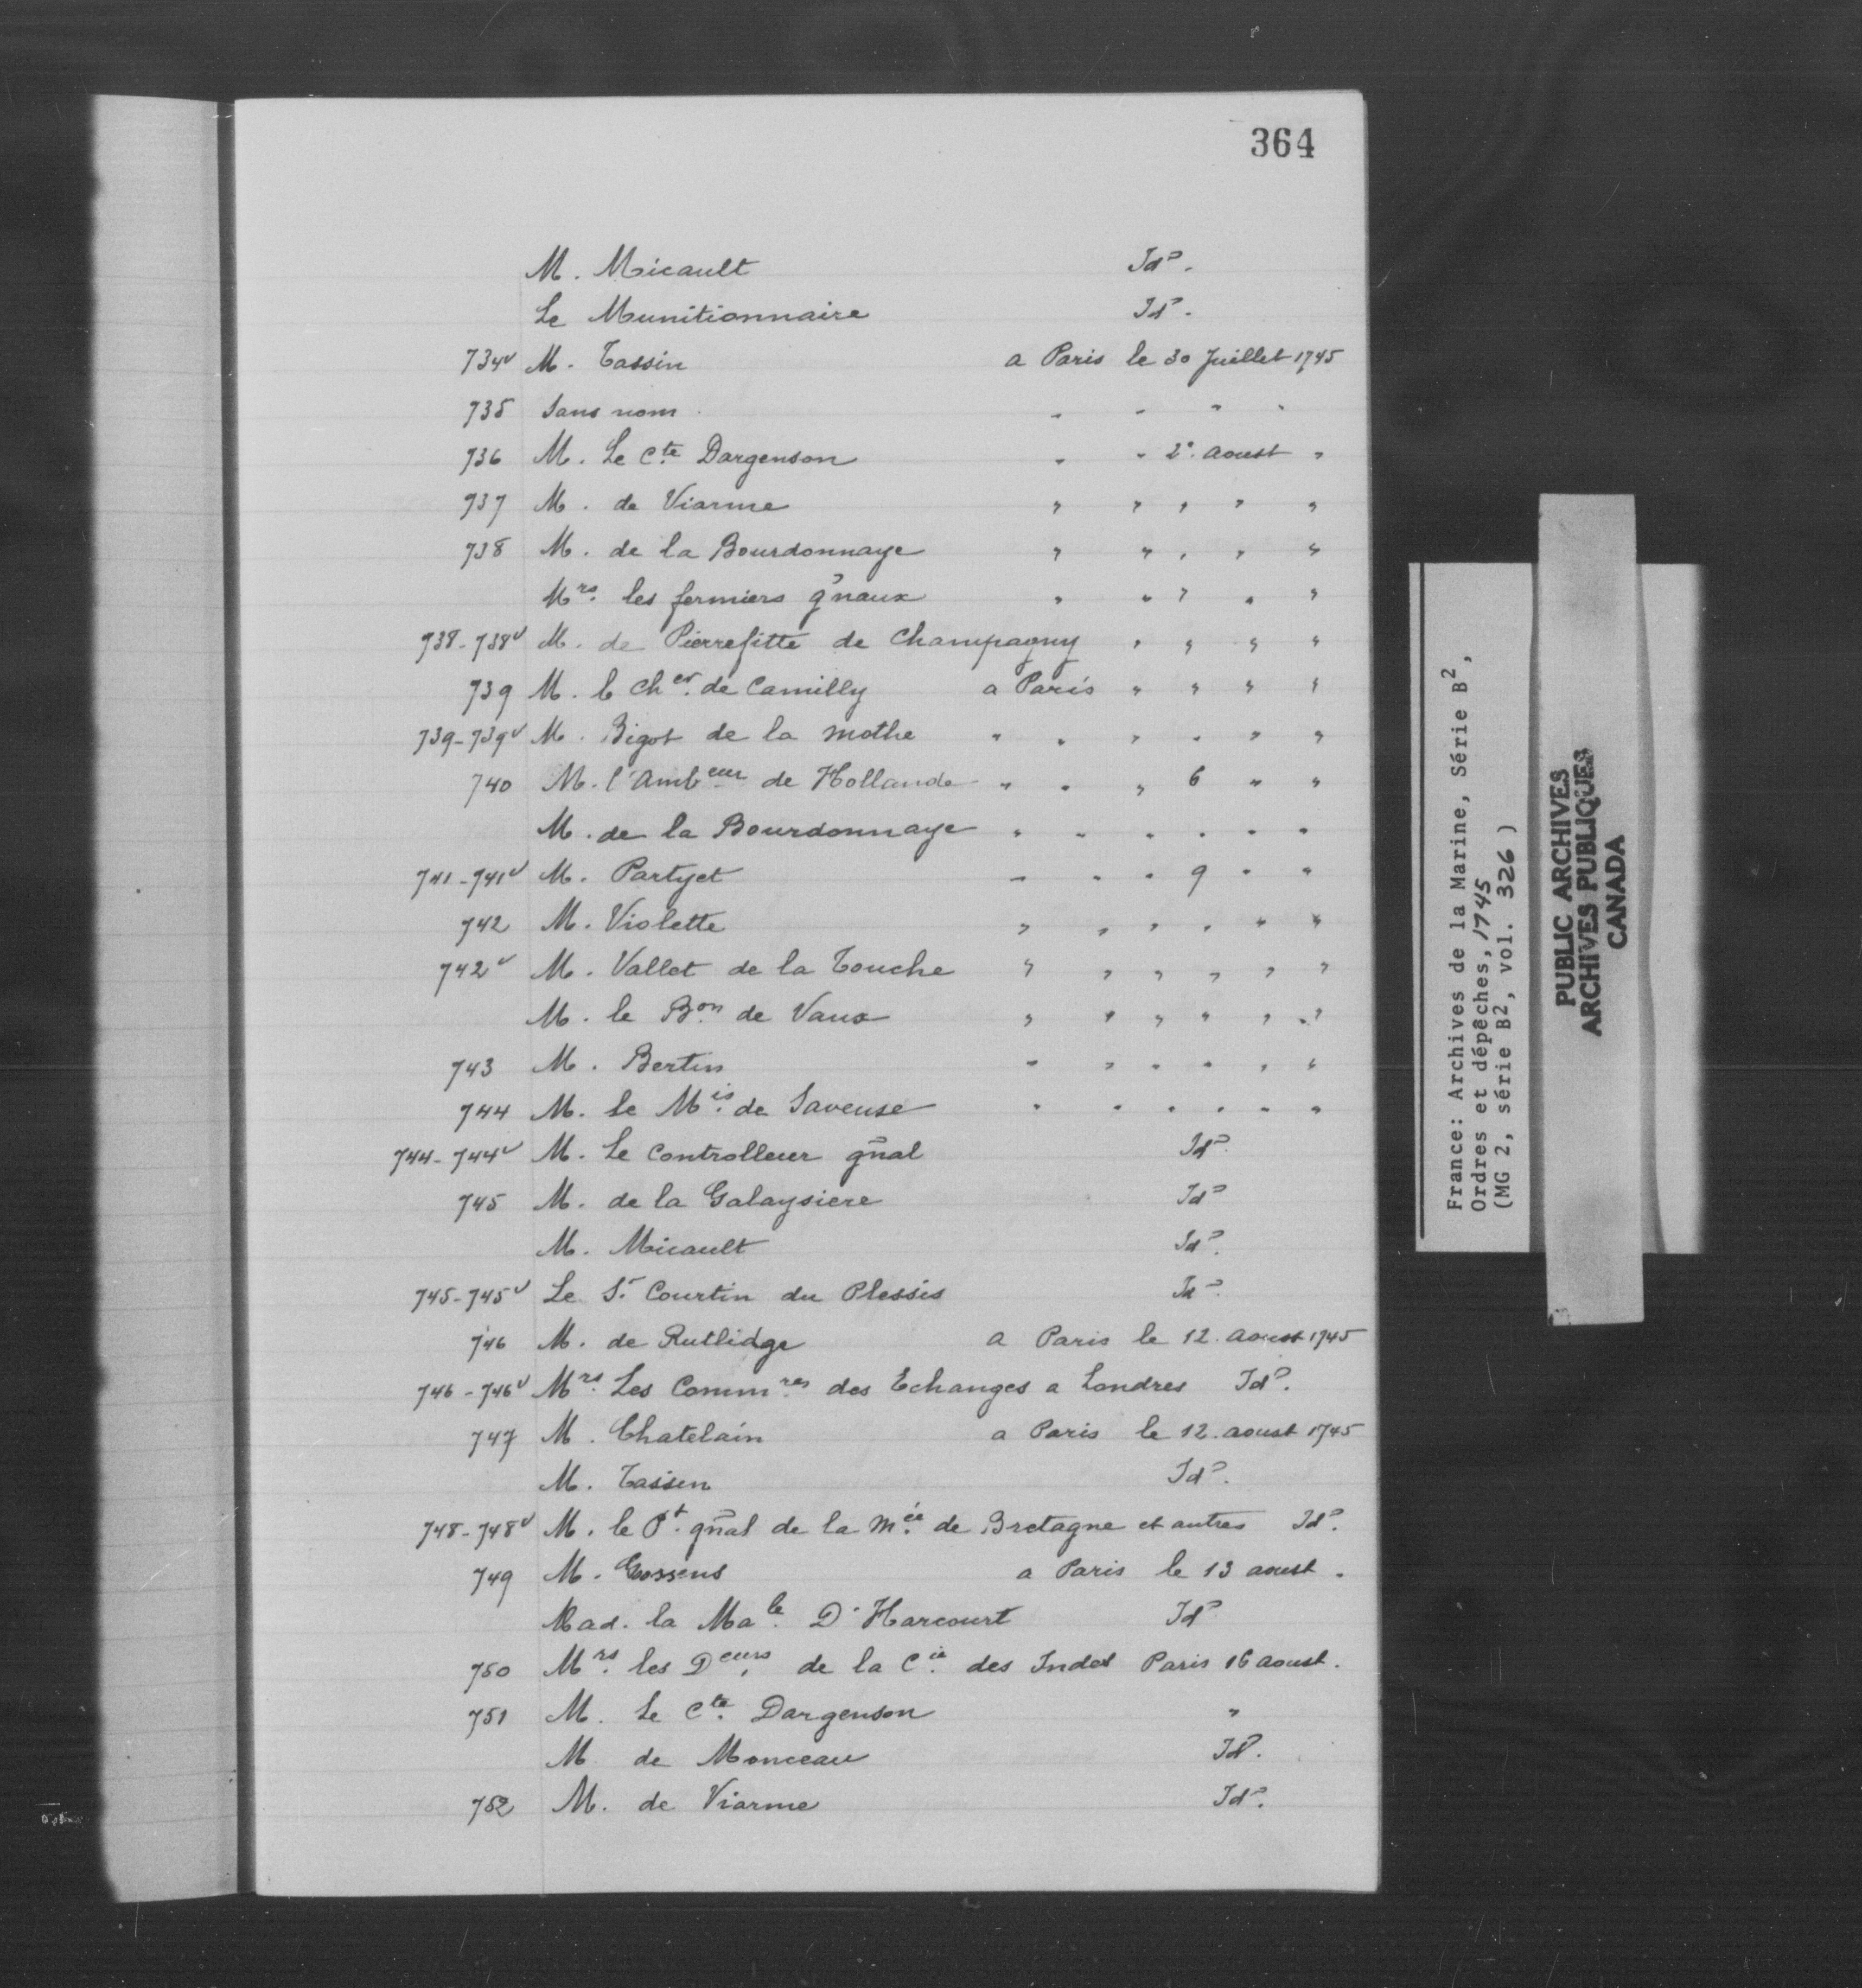 364
M. Micault Id°.
Le Munitionnaire Id°.
734v M. Tassin a Paris le 30 Juillet 1745
735 Sans nom " " " "
736 M. Le Cte Dargenson " " 2e. Aoust "
737 M. de Viarme " " " " "
738 M. de la Bourdonnaye " " " " "
Mrs. les fermiers gñaux " " " " "
738-738v M. de Pierrefitte de Champagny " " " "
739 M. le cher. de Camilly a Paris " " " "
739-739v M. Bigot de la mothe " " " " " "
740 M. l'Ambeur de Hollande " " " 6 " "
M. de la Bourdonnaye " " " " " "
741-741v M. Partyet " " " 9 " "
742 M. Violette " " " " " "
742v M. Vallet de la Touche " " " " " "
M. le Bon. de Vaux " " " " " "
743 M. Bertin " " " " " "
744 M. le Mis. de Saveuse " " " " " "
744-744v M. Le Controlleur gñal Id°.
745 M. de la Galaysiere Id°
M. Micault Id°.
745-745v Le Sr. Courtin du Plessis Id°.
746 M. de Rutlidge a Paris le 12. Aoust 1745
746-746v Mrs. Les Commres des Echanges a Londres Id°.
747 M. Chatelain a Paris le 12. aoust 1745
M. Tassin Id°.
748-748v M. le Pt. gñal de la mée. de Bretagne et autres Id°.
749 M. Gossens a Paris le 13 aoust "
Mad. la Male. D'Harcourt Id°
750 Mrs. les Deurs, de la Cie. des Indes Paris 16 aoust.
751 M. Le Cte. Dargenson "
M de Monceau Id°.
752 M. de Viarme Id°.
France: Archives de la Marine, Série B2,
Ordres et dépêches, 1745
(MG 2, série B2, vol. 326)
PUBLIC ARCHIVES
ARCHIVES PUBLIQUES
CANADA